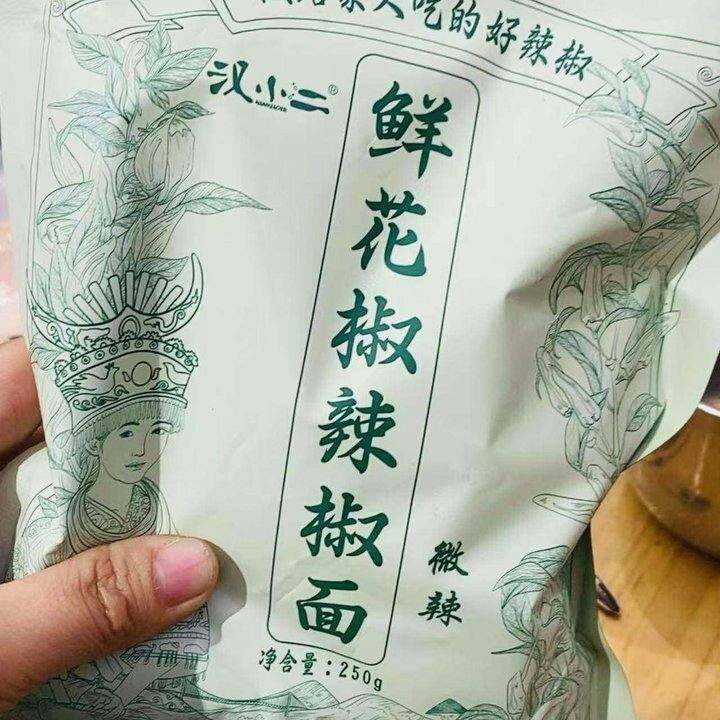 家人吃的好辣椒
汉小二®
鲜花椒辣椒面
微辣
净含量：250g